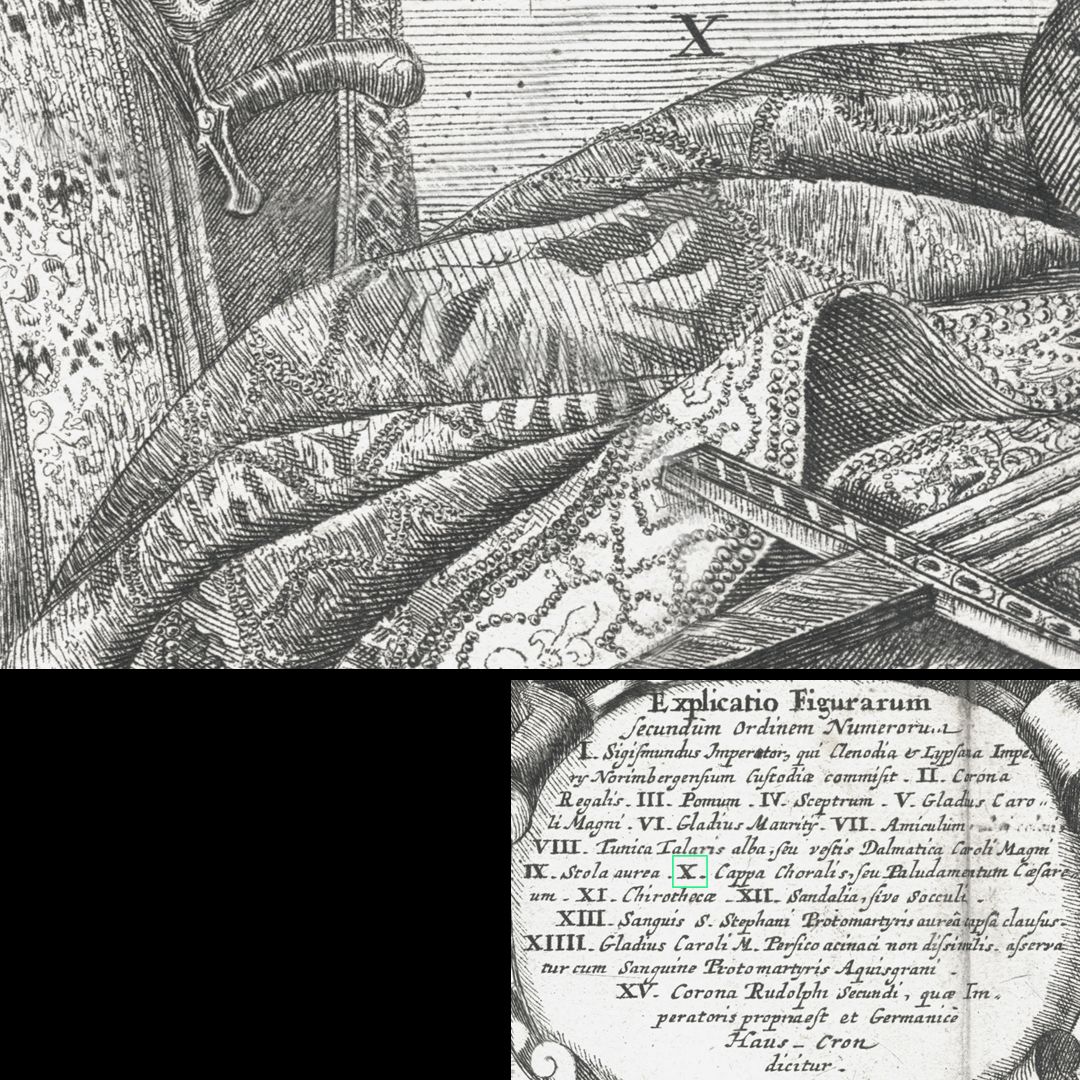 X
Explicatio Figurarum
secundùm Ordinem Numerorum
I. Sigismundus Imperator, qui Clenodia & Lypsana Impe
rÿ Norimbergensium Custodiæ commisit. II. Corona
Regalis. III. Pomum. IV. Sceptrum. V. Gladus Caro
li Magni. VI. Gladius Maurity. VII. Amiculum
VIII. Tunica Talaris alba, seu vestis Dalmatica Caroli Magni
IX. Stola aurea. X. Cappa Choralis, seu Paludamentum Cæsare
um. XI. Chirothecæ XII. Sandalia, sive Socculi.
XIII. Sanguis S. Stephani Protomartyris aureâ capsâ clausus.
XIIII. Gladius Caroli M. Persico acinaci non dissimilis. asserva
tur cum Sanguine Protomartyris Aquisgrani.
XV. Corona Rudolphi Secundi, quæ Im.
peratoris propria est et Germanicè
Haus - Cron
dicitur.